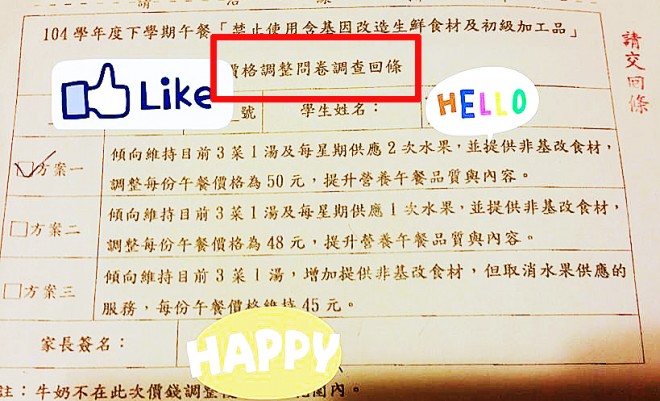 請
104學年度下學期午餐「禁止使用含基因改造生鮮食材及初級加工品」
價格調整問卷調查回條
請交回條
Like
HELLO
號 學生姓名:
方案一 傾向維持目前3菜1湯及每星期供應2次水果,並提供非基改食材,
調整每份午餐價格為50元,提升營養午餐品質與內容。
方案二 傾向維持目前3菜1湯及每星期供應1次水果,並提供非基改食材,
調整每份午餐價格為48元,提升營養午餐品質與內容。
方案三 傾向維持目前3菜1湯,增加提供非基改食材,但取消水果供應的
服務,每份午餐價格維持45元。
家長簽名:
HAPPY
註:牛奶不在此次價錢調整 範圍內。